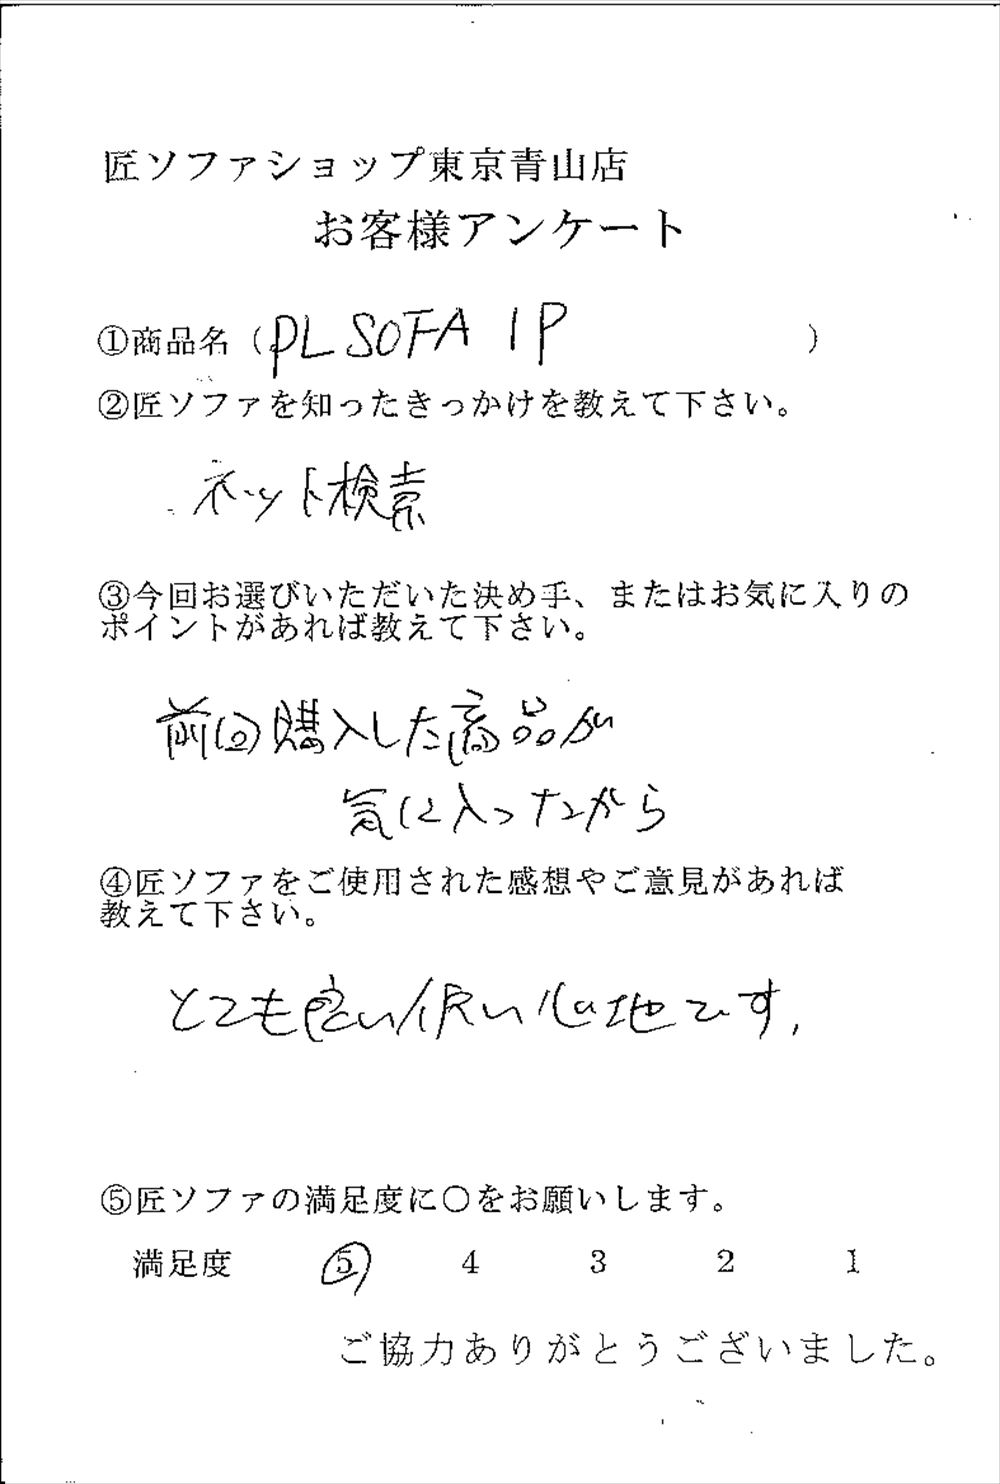 匠ソファショップ東京青山店
お客様アンケート
①商品名（PL SOFA 1P）
②匠ソファを知ったきっかけを教えて下さい。
ネット検索
③今回お選びいただいた決め手、またはお気に入りの
ポイントがあれば教えて下さい。
前回購入した商品が
気に入ったから
④匠ソファをご使用された感想やご意見があれば
教えて下さい。
とても良い使い心地です,
⑤匠ソファの満足度に〇をお願いします。
満足度 5 4 3 2 1
ご協力ありがとうございました。